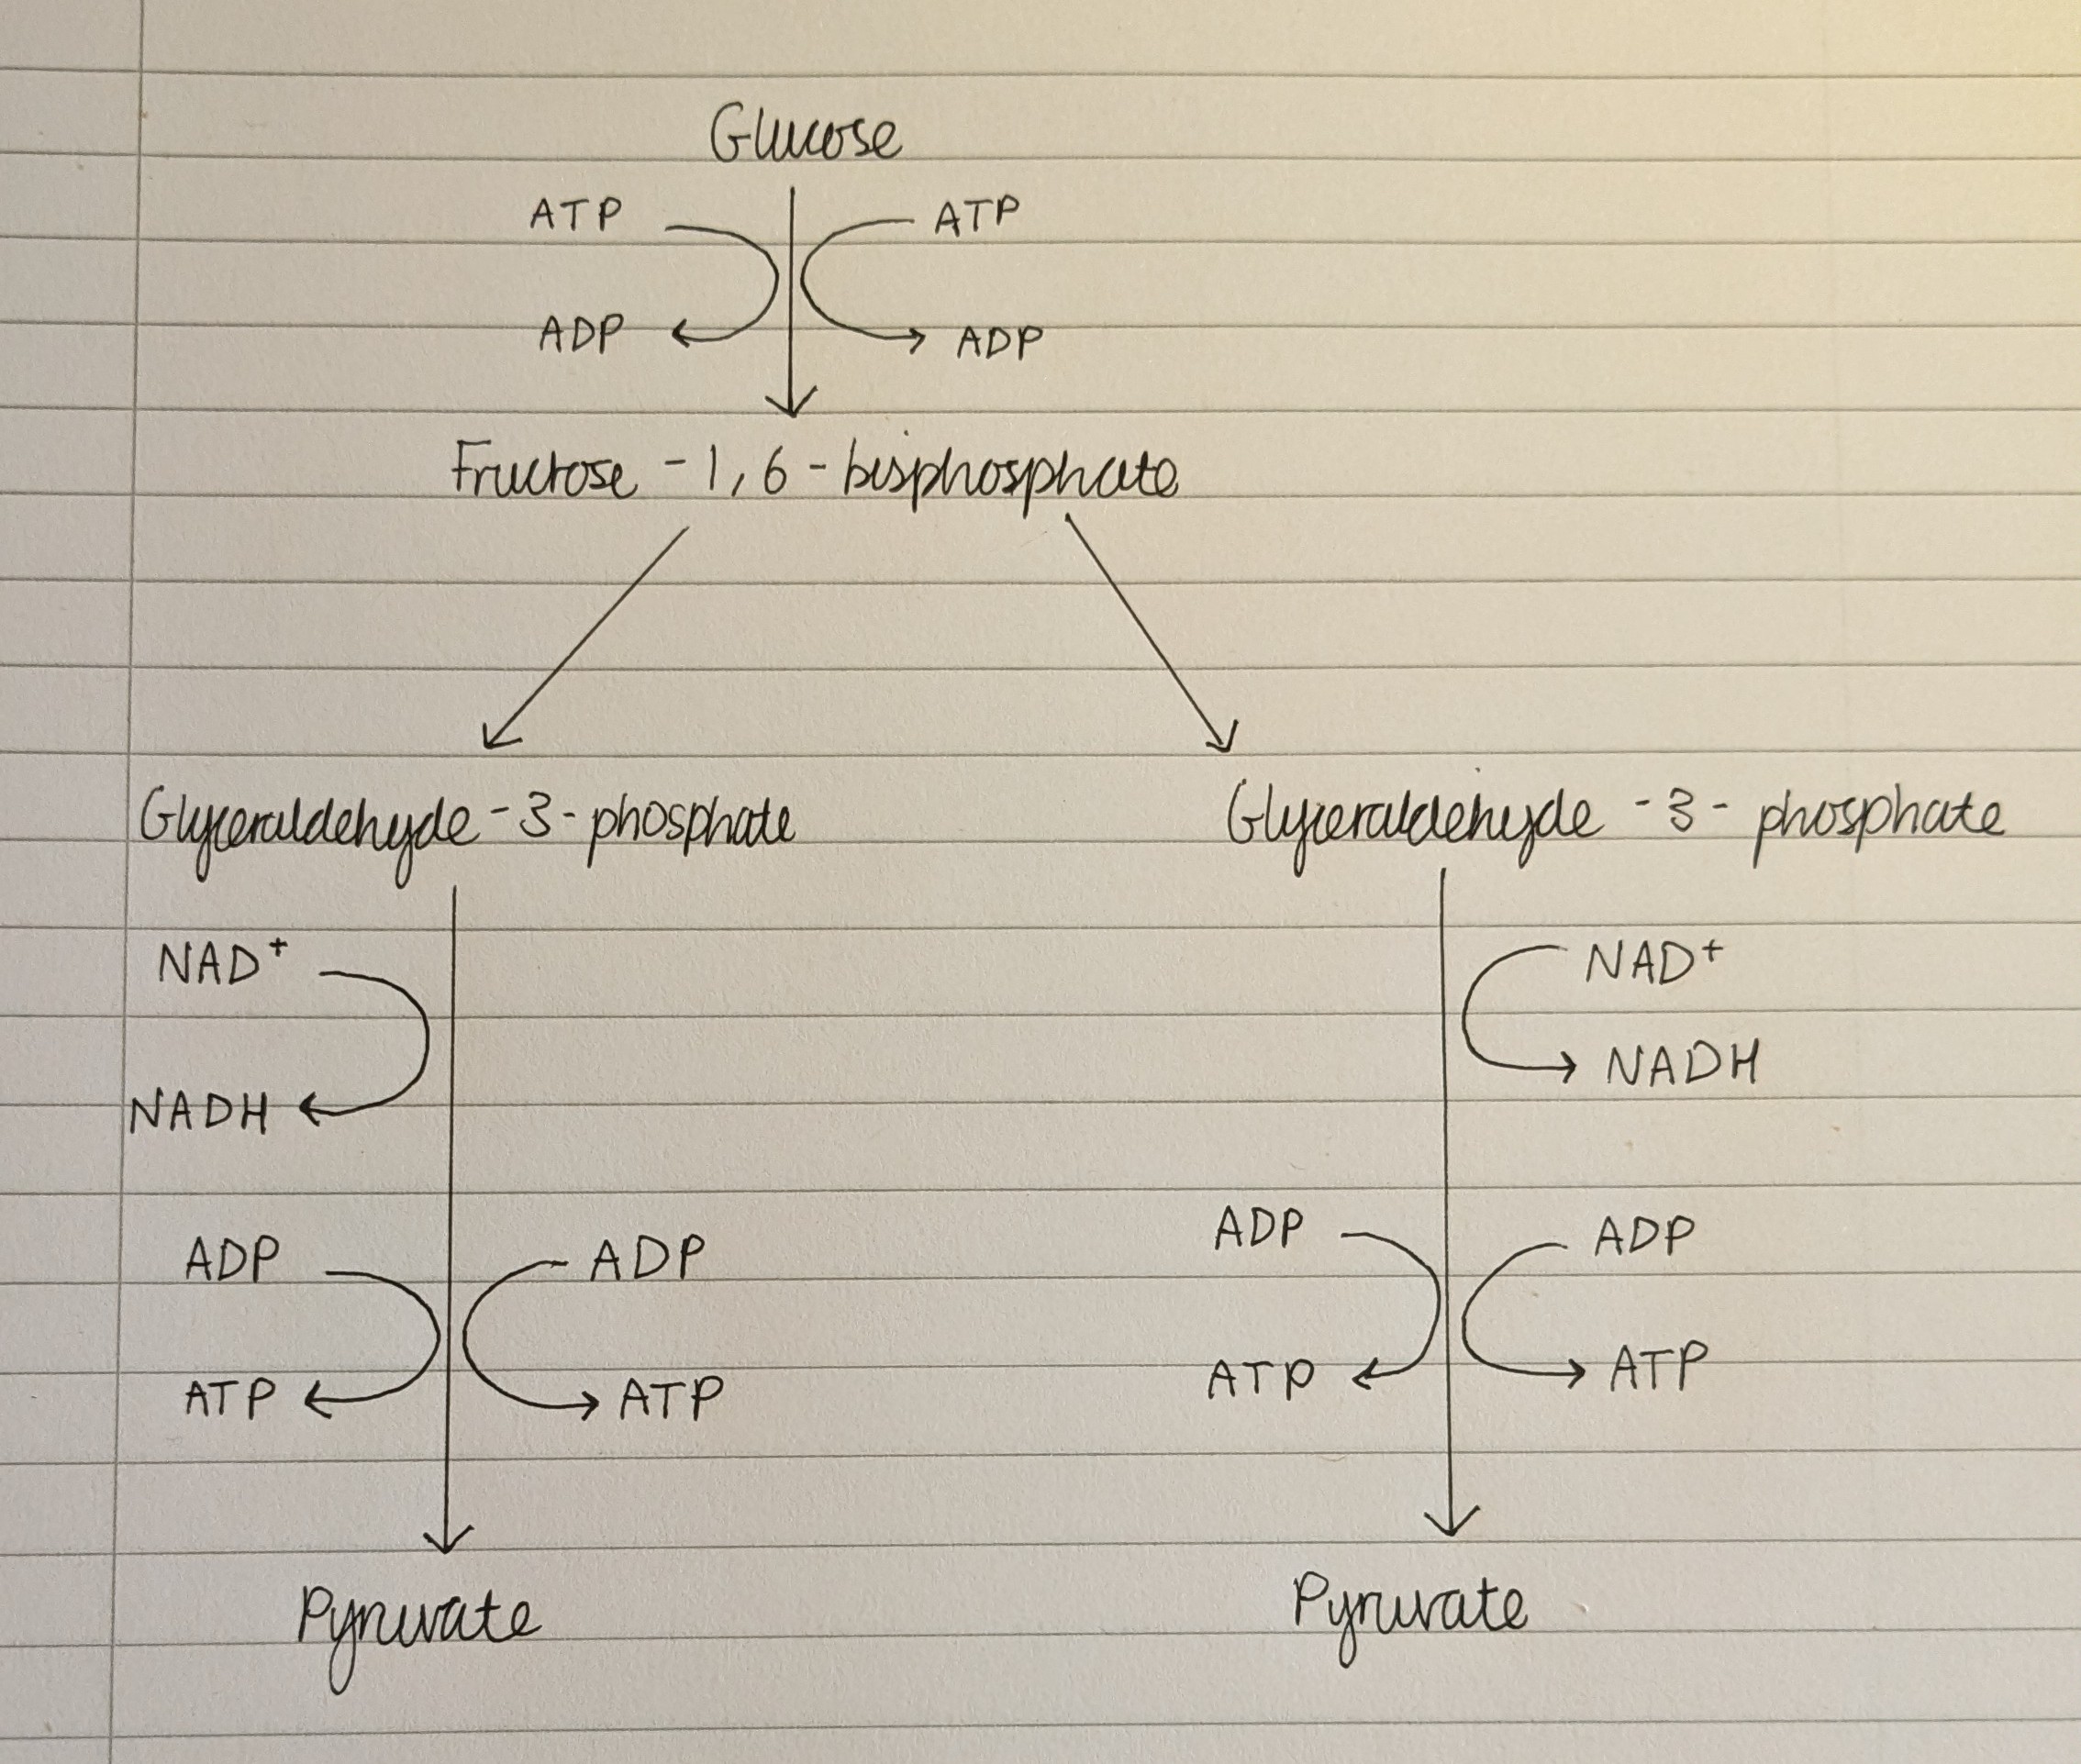 Glucose
ATP ATP
ADP ADP
Fructose - 1, 6 - bisphosphate
Glyceraldehyde - 3 - phosphate Glyceraldehyde - 3 - phosphate
NAD+ NAD+
NADH NADH
ADP ADP ADP ADP
ATP ATP ATP ATP
Pyruvate Pyruvate